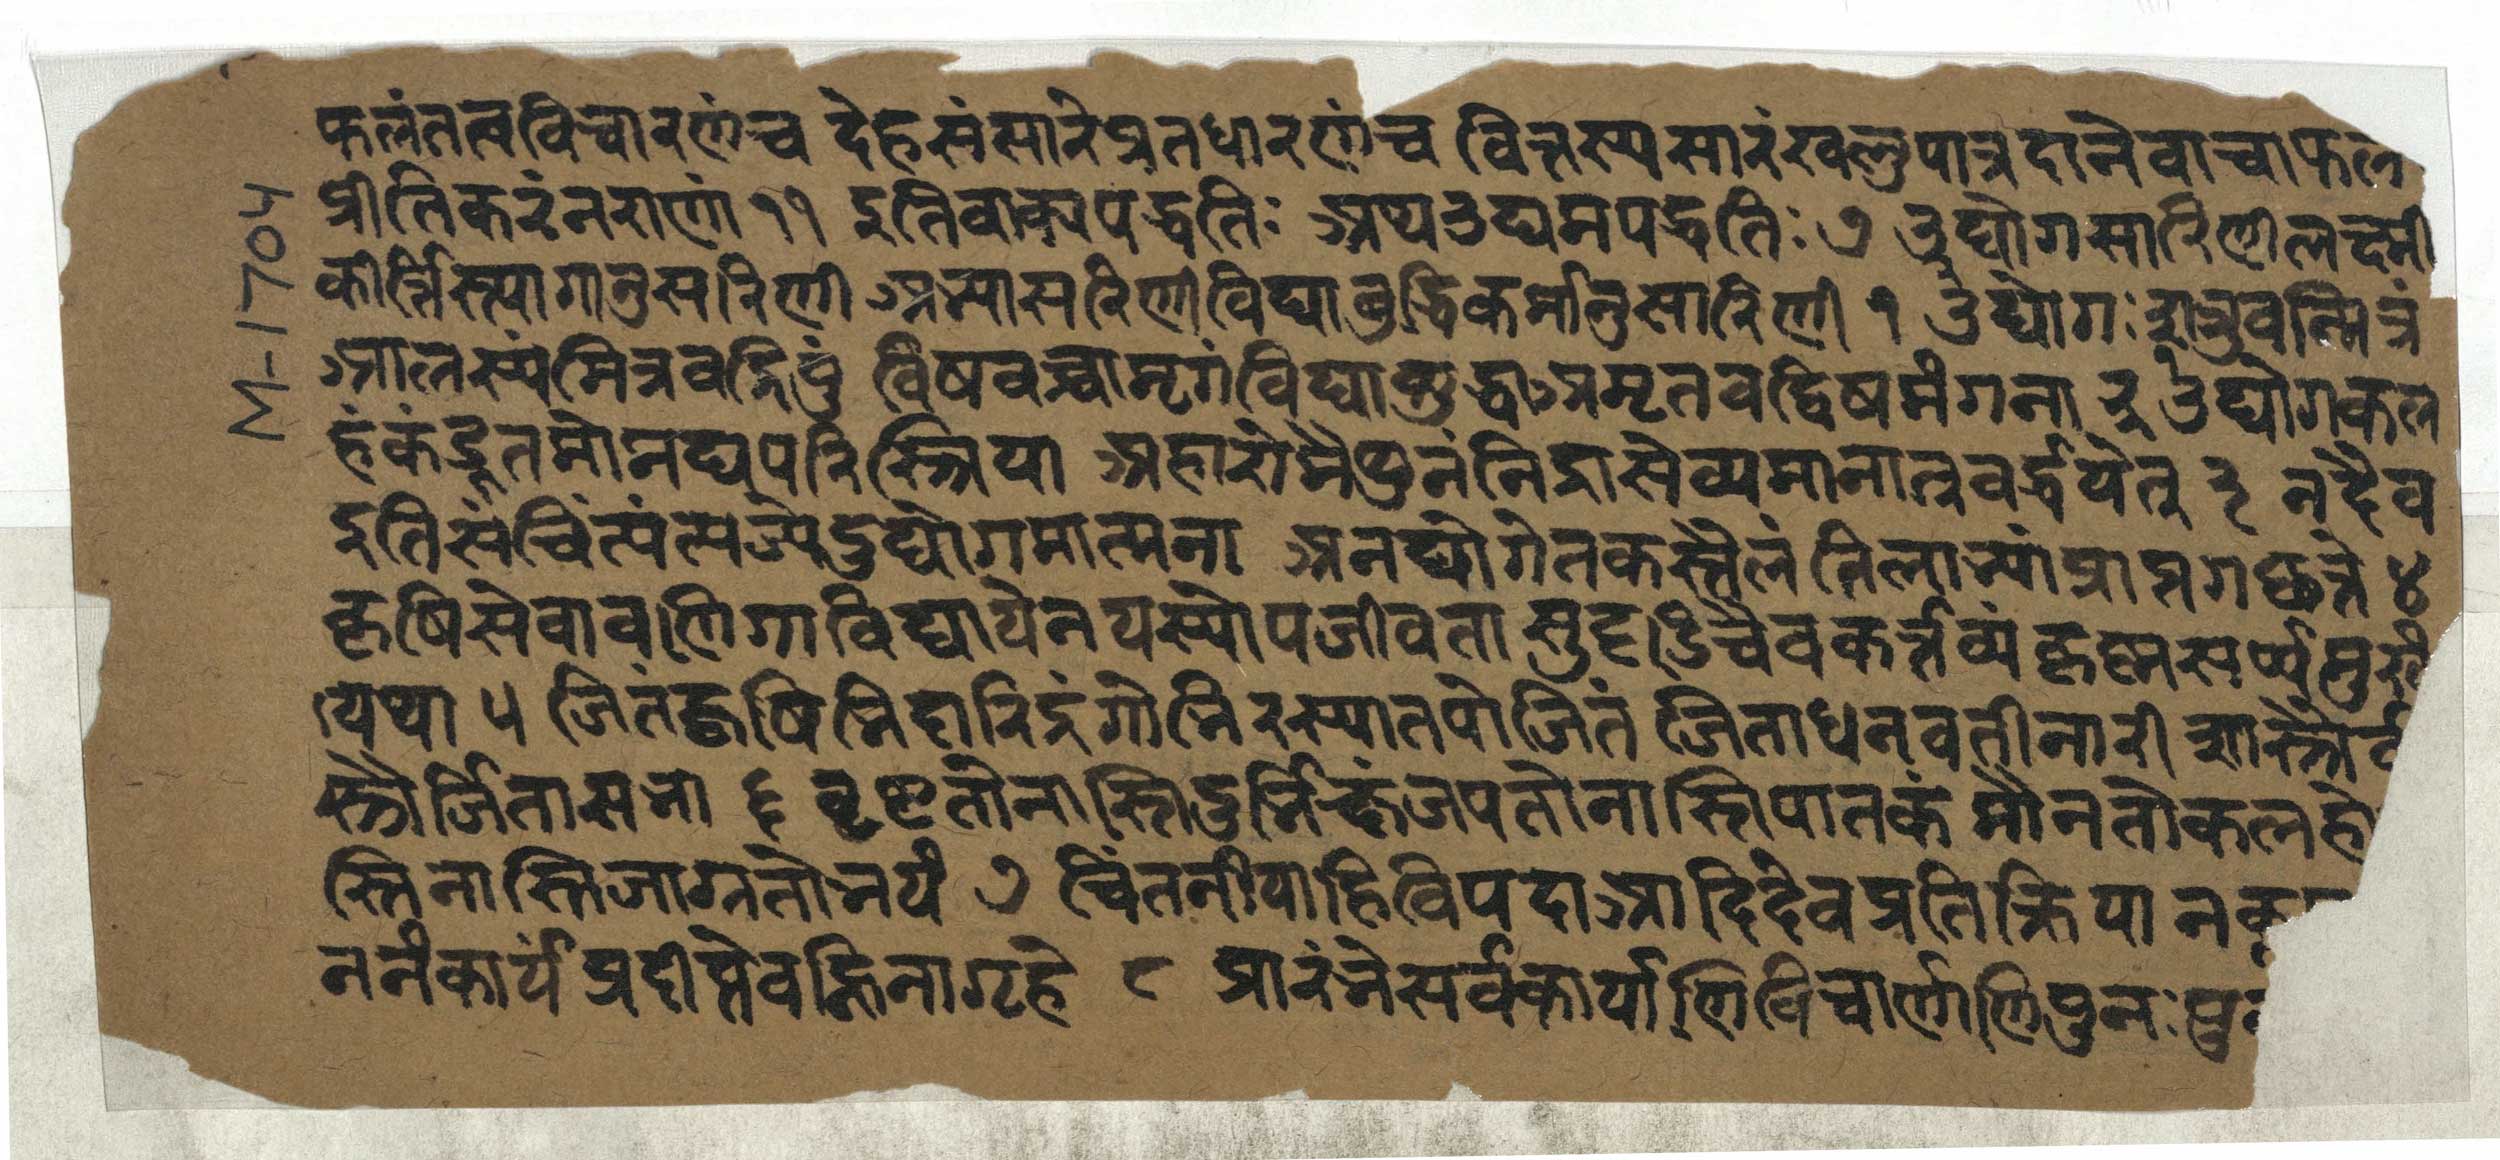 फलंतत्वविचारणंच देहसंसारेव्रतधारणंच वित्तस्यसारंखलुपात्रदानेवाचाफल
प्रीतिकरंनराणां ११ इतिवाक्यपद्धतिः अथउद्यमपद्धतिः ७ उद्योगसारिणीलक्ष्मी
कीर्त्तिस्त्यागानुसरिणी अभ्यासरिणीविद्याबुद्धिकर्मानुसारिणी १ उद्योगःशत्रुवन्मित्रं
आलस्यंमित्रवद्रिपुं विषवच्चामृगंविद्यास्तुद्धाअमृतवद्विषमंगना २ उद्योगकल
हंकंडूतमोमद्यपरिस्त्रिया अहारोमैथुनंनिद्रासेव्यमानात्तुवर्द्धयेत् ३ नदैव
इतिसंचिंत्यंत्यज्येदुद्योगमात्मना अनद्योगेतकस्तैलंतिलाभ्यांप्राप्तगछते ४
कृषिसेवावणिगाविद्यायेनयस्योपजीवता सुदृढिचैवकर्त्तव्यंकृष्णसर्प्पमुखै
त्यथा ५ जितंकृषिभिदारिद्रंगोभिरस्यातपोजितं जिताधनवतीनारी शास्त्रौर्व
स्त्रौर्जितासभा ६ वृष्टतोनास्तिदुर्भिक्षंजपतोनास्तिपातकं मौनतोकलहो
स्तिनास्तिजाग्रतोभयं ७ चिंतनीयाहिविपदाआदिदेवप्रतिक्रिया नकू
ननंकार्यंप्रदीप्तेवह्निनागृहे ८ प्रारंभेसर्वकार्याणिविचार्णाणिपुनःपु
M-1704